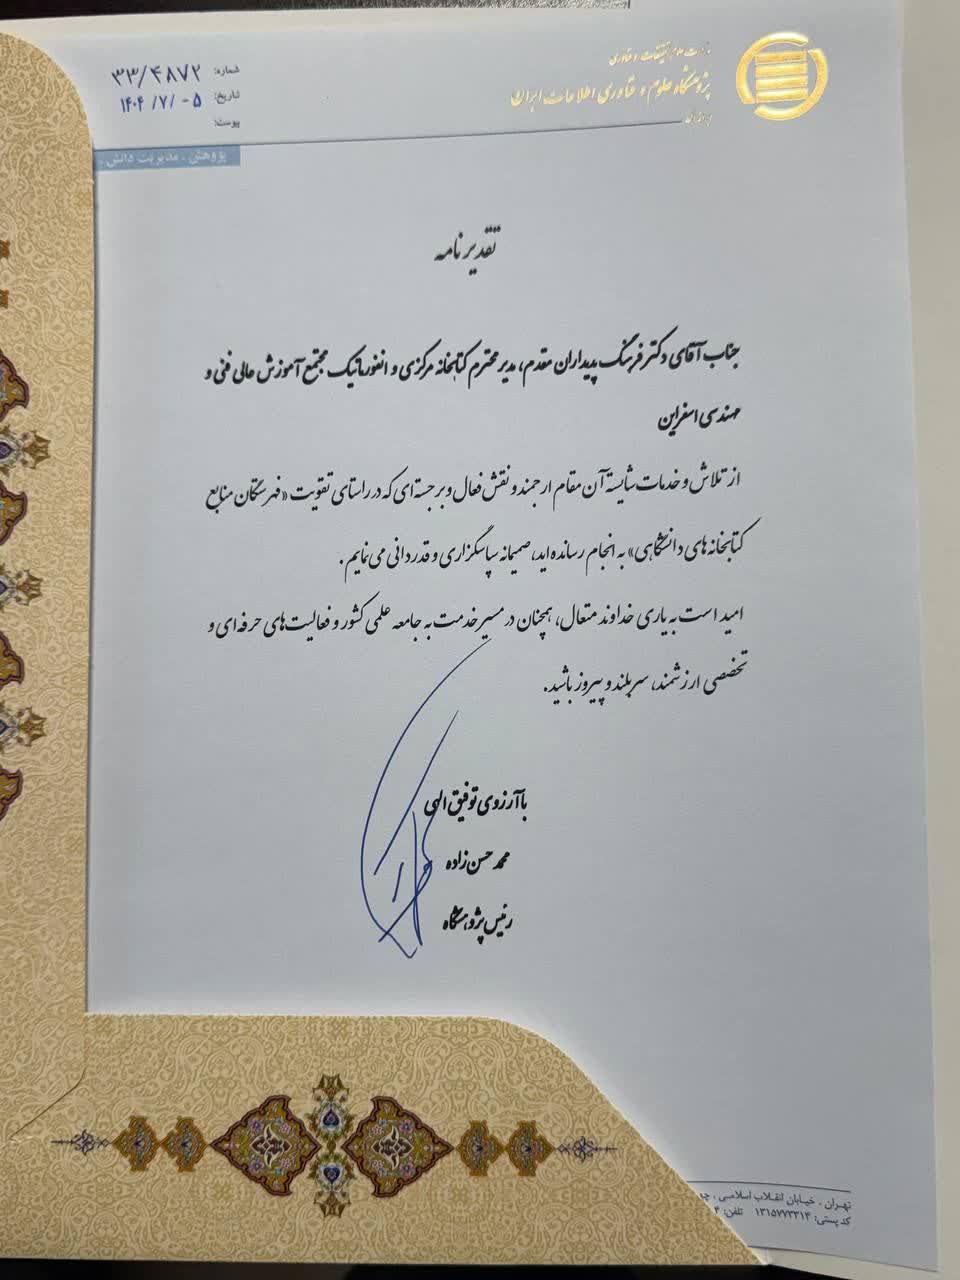 وزارت علوم، تحقیقات و فناوری
پژوهشگاه علوم و فناوری اطلاعات ایران
ایرانداک
شماره: ۳۳/۴۸۷۲
تاریخ: ۱۴۰۴ /۷/ -۵
پیوست:
پژوهش . مدیریت دانش .
تقدیرنامه
جناب آقای دکتر فرهنگ پدیداران مقدم، مدیر محترم کتابخانه مرکزی و انفورماتیک مجتمع آموزش عالی فنی و
مهندسی اسفراین
از تلاش و خدمات شایسته آن مقام ارجمند و نقش فعال و برجسته ای که در راستای تقویت «فهرستگان منابع
کتابخانه های دانشگاهی» به انجام رسانده اید، صمیمانه سپاسگزاری و قدردانی می نمایم.
امید است به یاری خداوند متعال، همچنان در مسیر خدمت به جامعه علمی کشور و فعالیت های حرفه ای و
تخصصی ارزشمند، سربلند و پیروز باشید.
با آرزوی توفیق الهی
محمد حسن زاده
رئیس پژوهشگاه
تهران . خیابان انقلاب اسلامی .
کد پستی: ۱۳۱۵۷۷۳۳۱۴ تلفن: